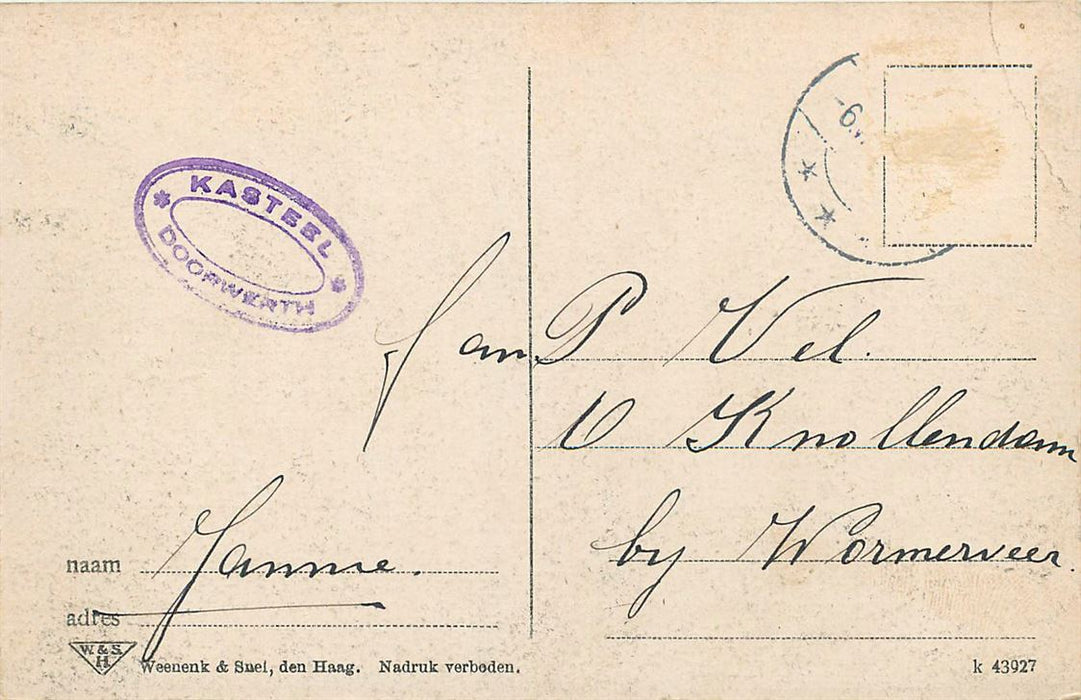 KASTEEL
DOORWERTH
-6.
fam P Vel.
O Knollendam
by Wormerveer.
naam Jannie.
adres
W. & S.
H.
Weenenk & Snel, den Haag. Nadruk verboden.
k 43927